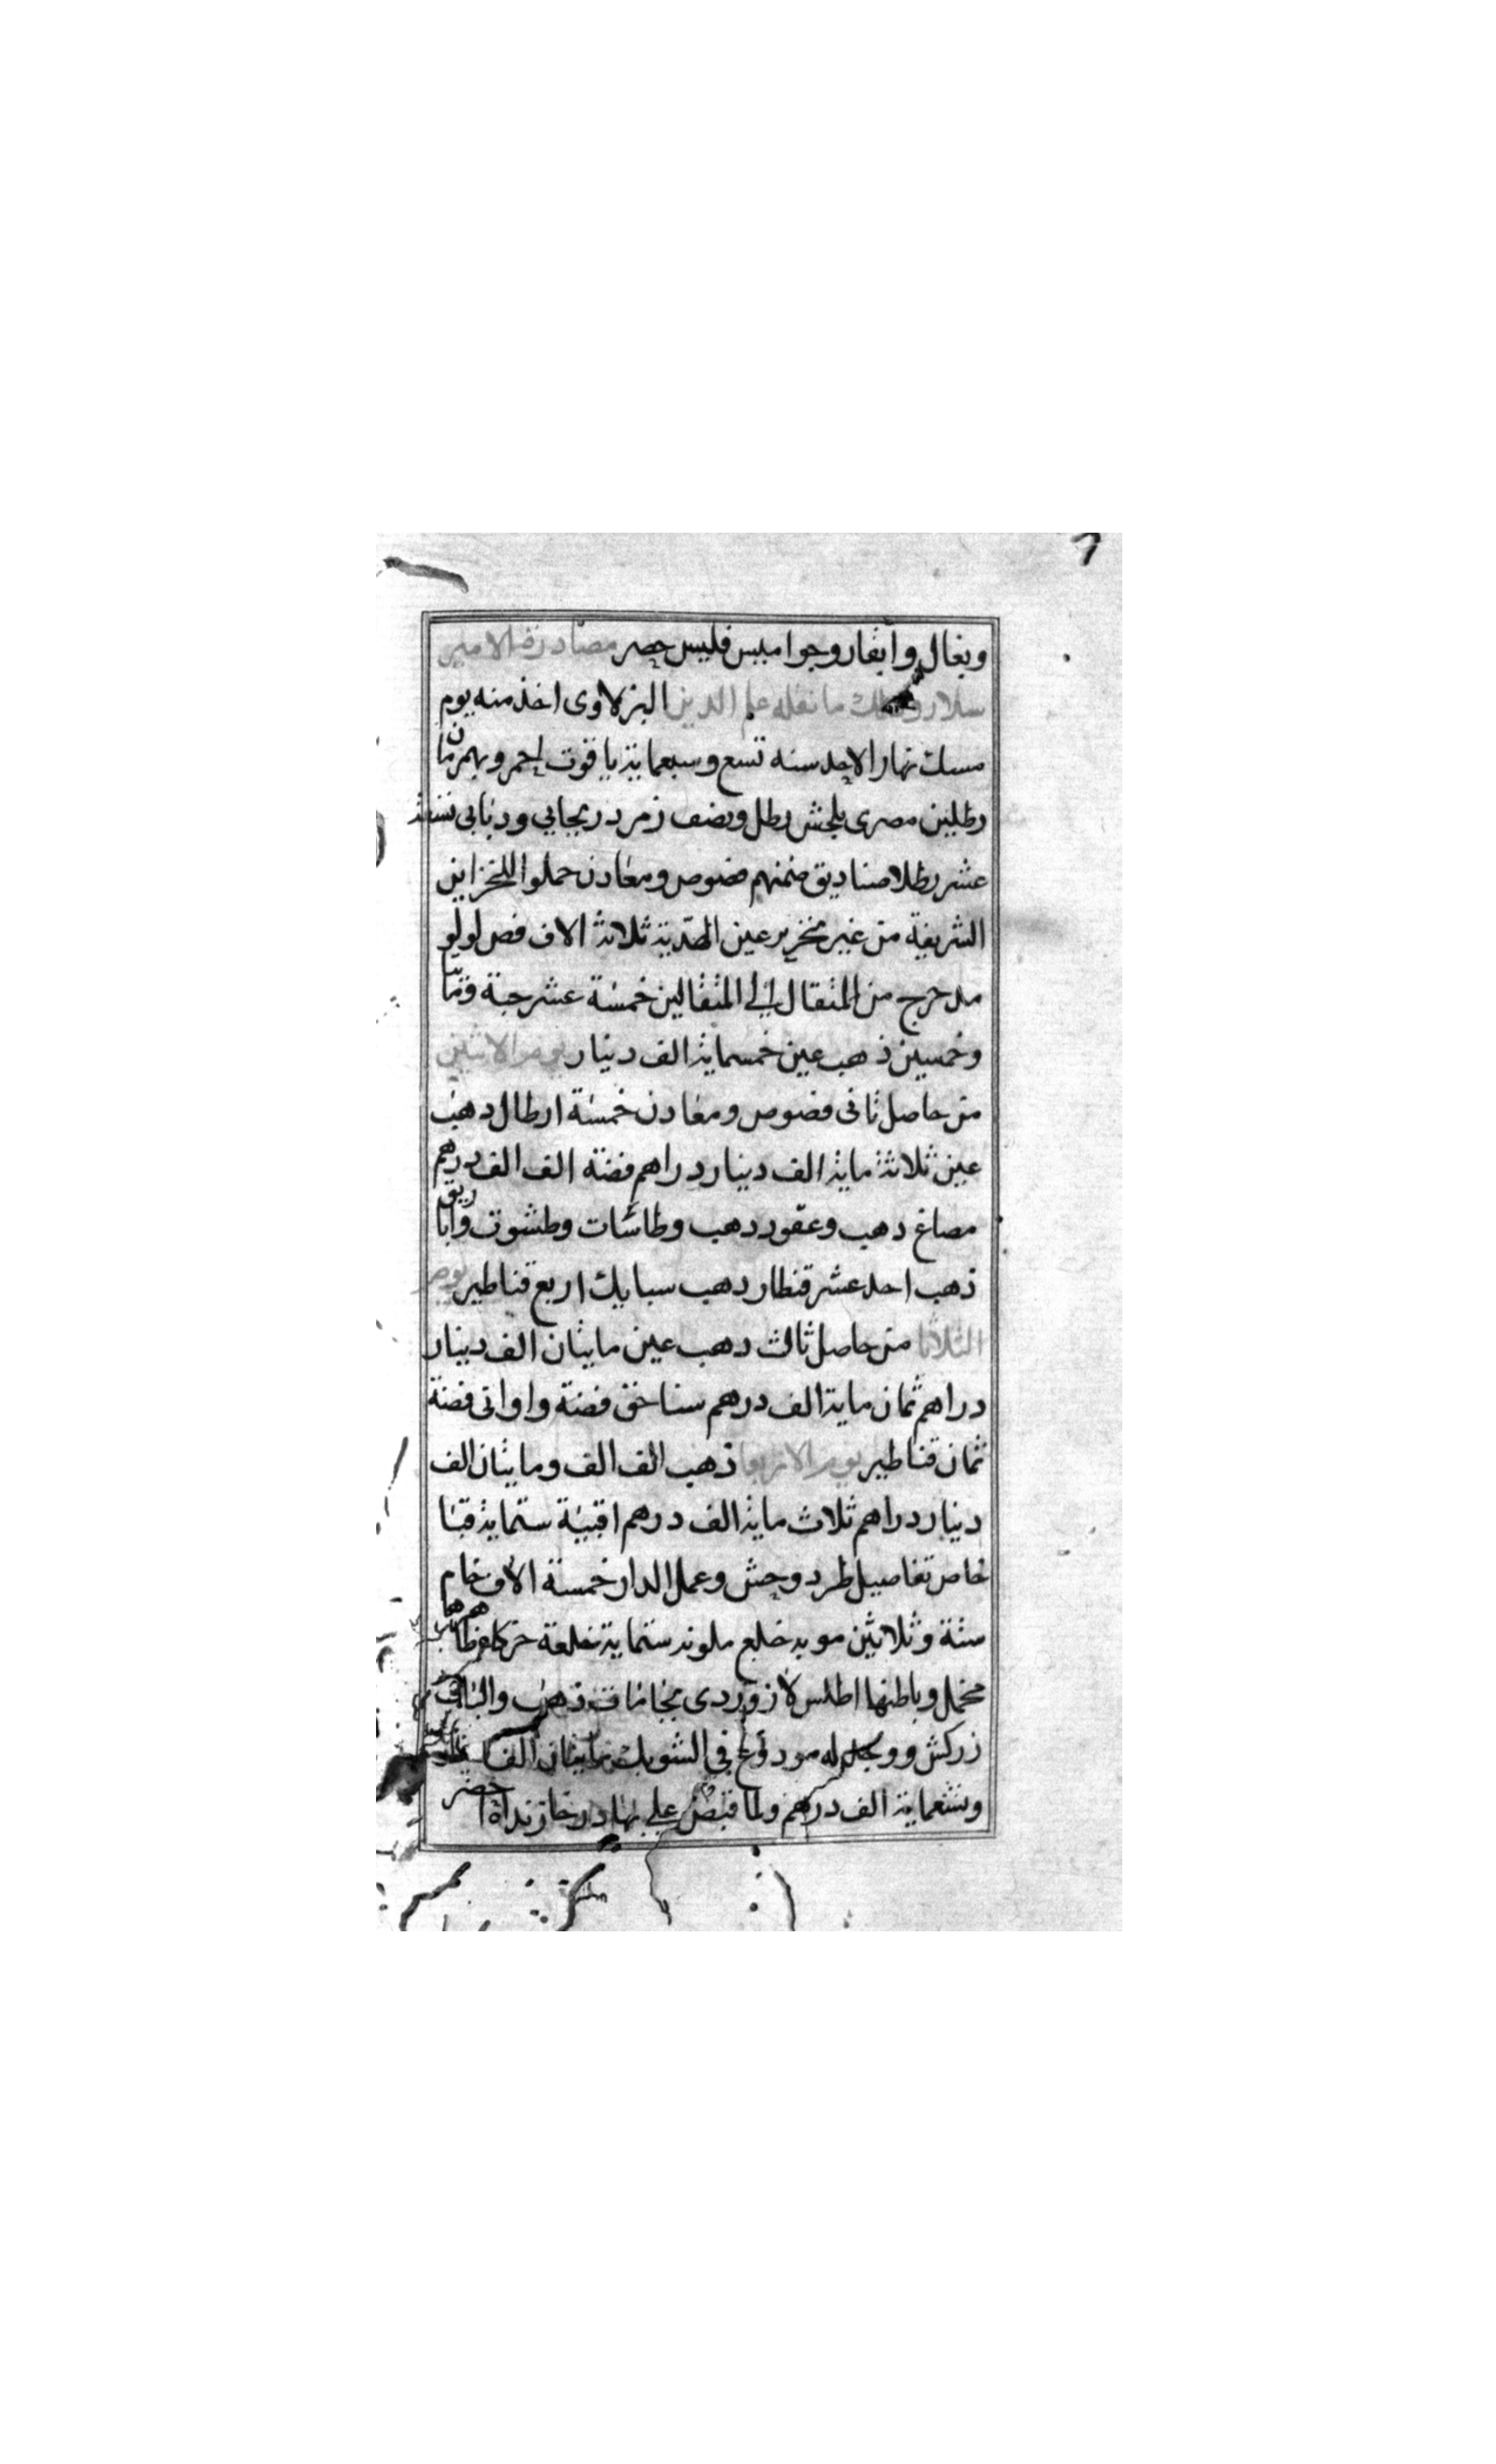 وبغال وابقار وجواميس فليس حصر مصادرة الامير
سلار وذلك ما نقله علم الدين البرلاوى اخذ منه يوم
مسك نهار الاحد سنه تسع وسبعماية ياقوت احمر وبهرمان
رطلين مصرى بلخش رطل ونصف زمرد ريحاني ودبابى تسعة
عشر رطلا صناديق ضمنهم فصوص ومعادن حملوا للخزاين
الشريفة من غير تحرير عين الهدية ثلاثة الاف فص لولو
مدحرج من المثقال الي المثقالين خمسة عشر حبة ومايتا
وخمسين ذهب عين خمسماية الف دينار يوم الاثنين
من حاصل ثانى فصوص ومعادن خمسة ارطال دهب
عين ثلاثة ماية الف دينار دراهم فضة الف الف درهم
مصاغ دهب وعقود دهب وطاسات وطشوت واباريق
ذهب احد عشر قنطار دهب سبايك اربع قناطير يوم
الثلاثا من حاصل ثالث دهب عين مايتان الف دينار
دراهم ثمان ماية الف درهم سناجق فضة واوانى فضة
ثمان قناطير يوم الاربعا ذهب الف الف ومايتان الف
دينار دراهم ثلاث ماية الف درهم اقبية ستماية قبا
خاص تفاصيل طرد وحش وعمل الدار خمسة الاف خام
ستة وثلاثين موبد خلع ملونة ستماية خلعة خركاه ظاهرها
مخمل وباطنها اطلس لازوردى بجامات ذهب والباقى
زركش ووجد له مودوع في الشوبك مايتان الف
وتسعماية الف درهم ولما قبض علي بهادر خازنداة احضر